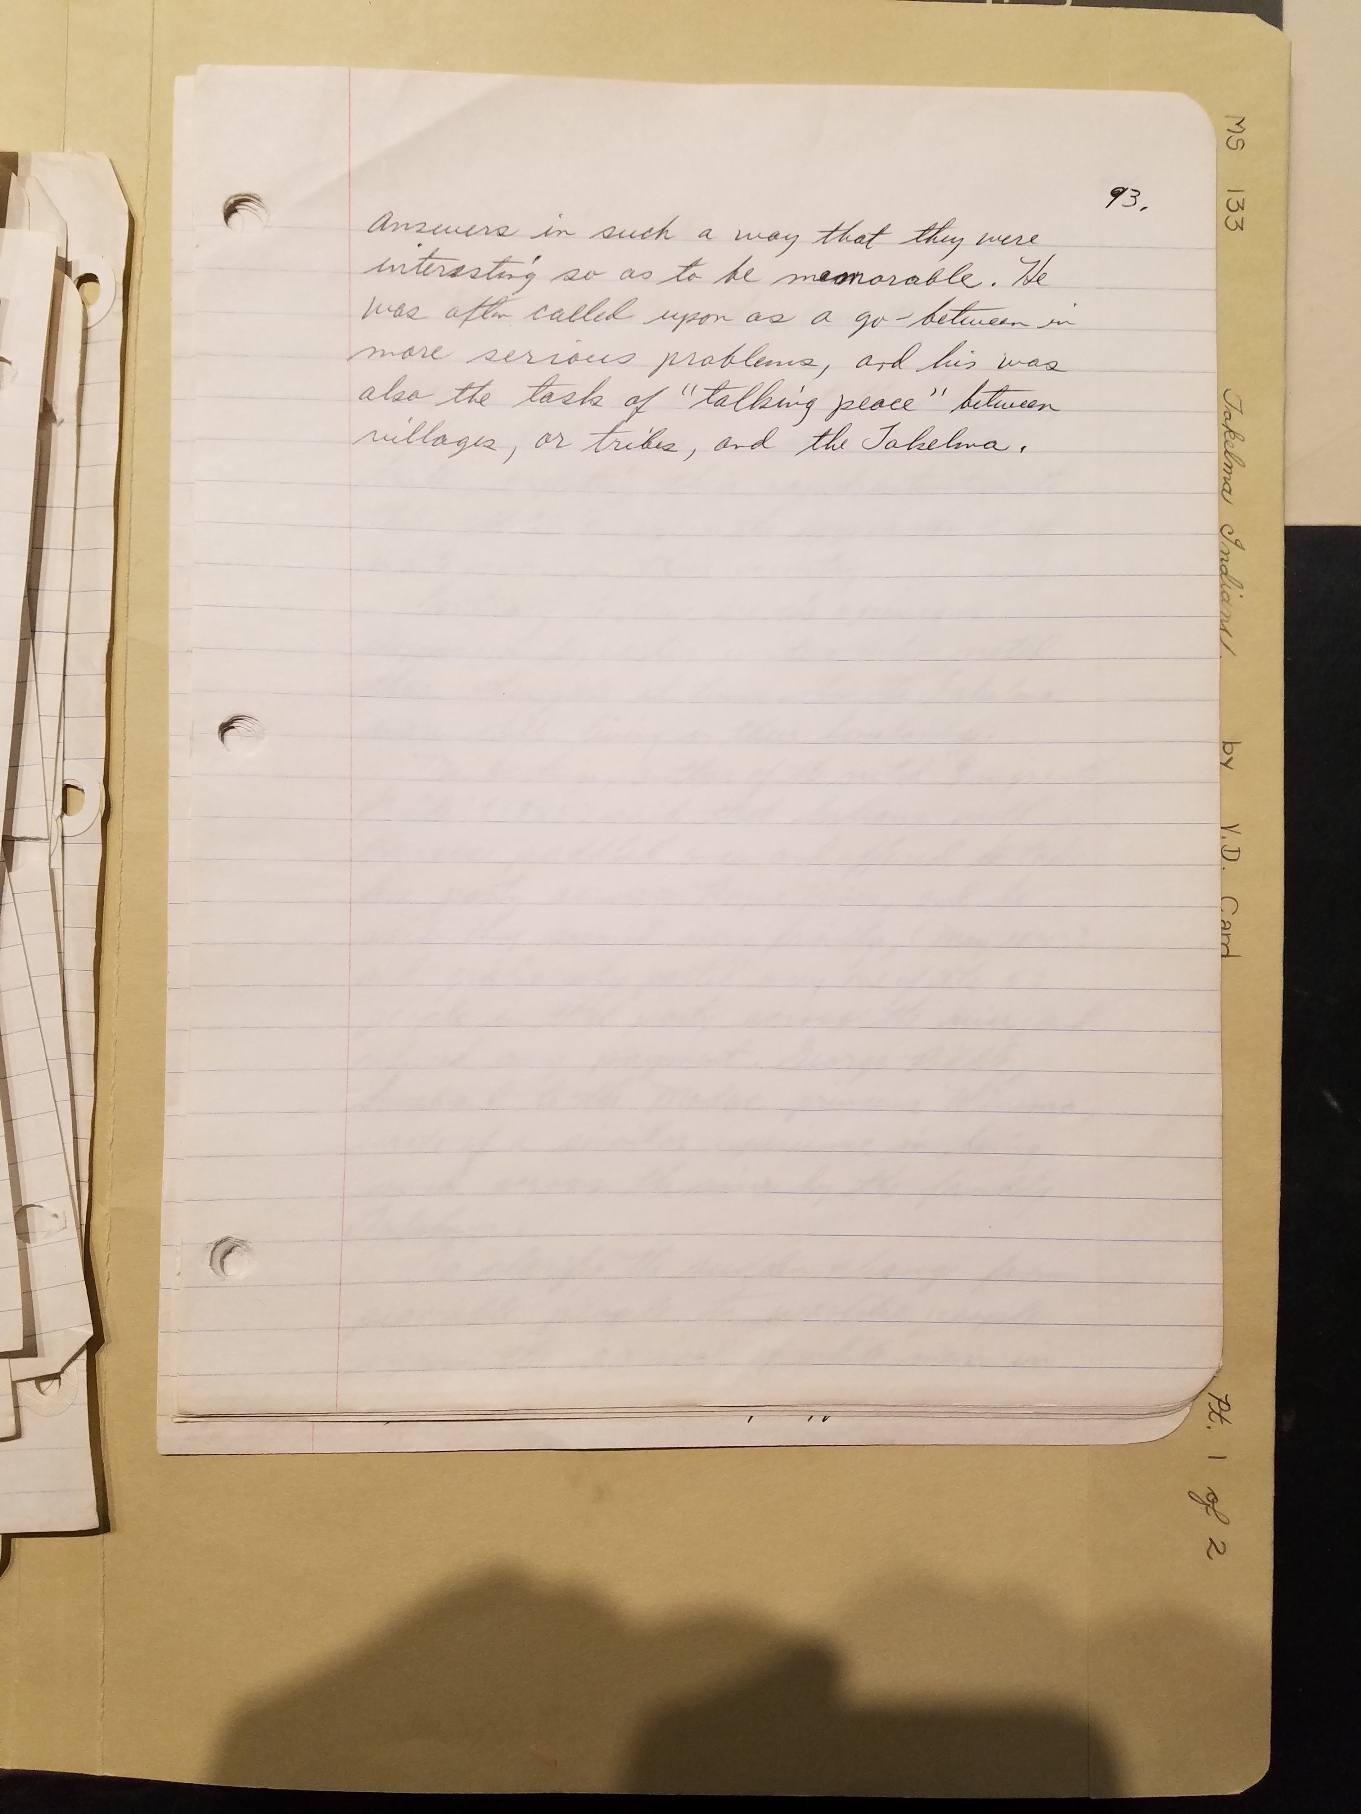 93.
Answers in such a way that they were
interssting so as to be memorable. He
was often called upon as a go-between in
more serious problems, and his was
also the task of "talking peace" between
villages, or tribes, and the Takelma.
MS 133 Takelma Indians. by V.D. Card Pt. 1 of 2